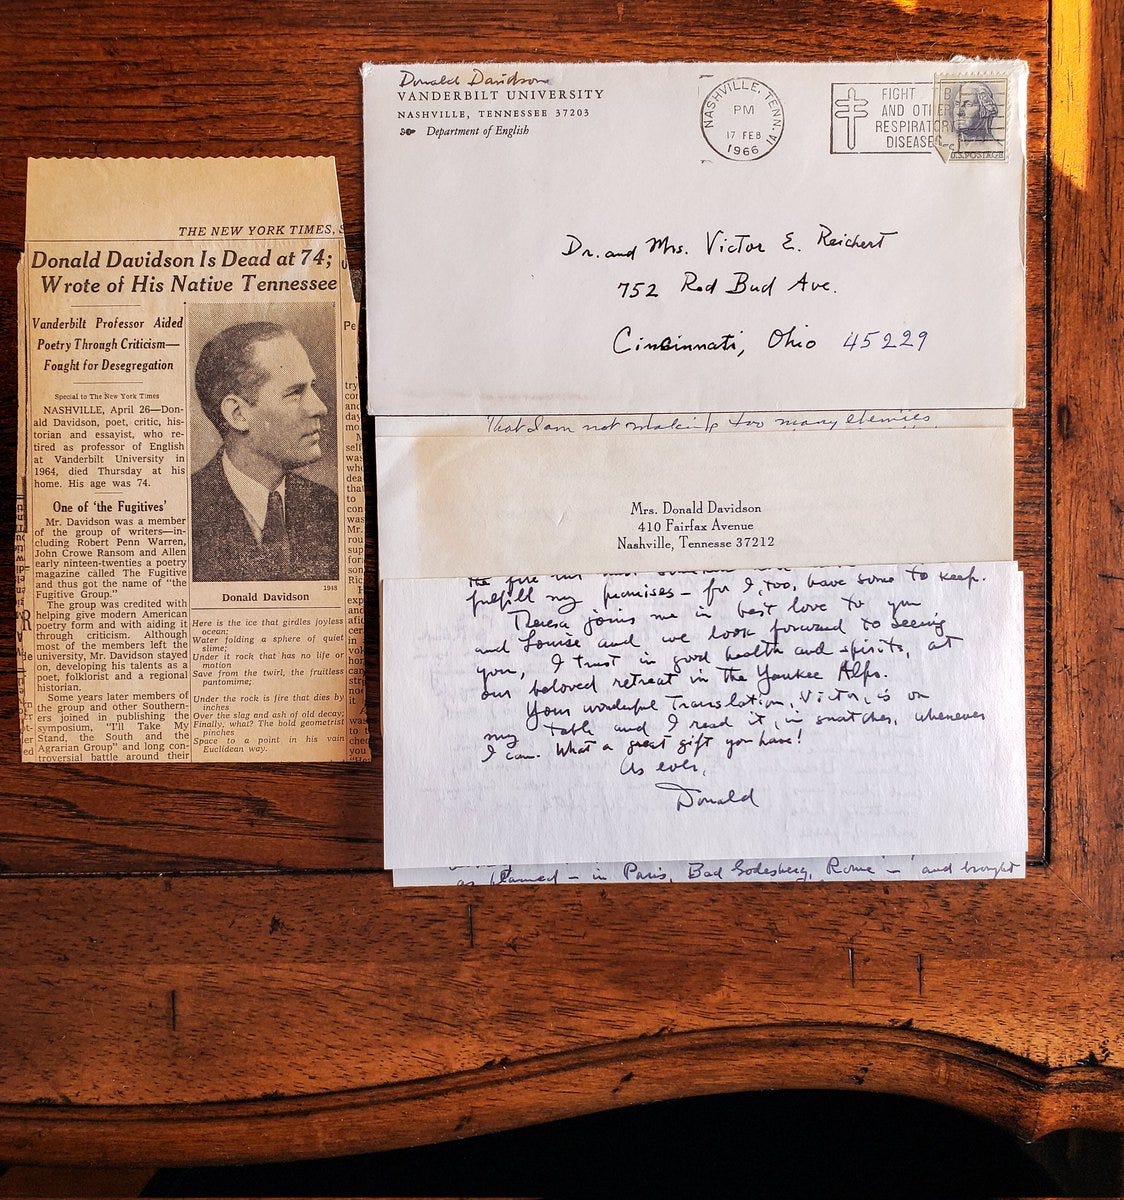 THE NEW YORK TIMES, S
Donald Davidson Is Dead at 74;
Wrote of His Native Tennessee
Vanderbilt Professor Aided
Poetry Through Criticism—
Fought for Desegregation
Special to The New York Times
NASHVILLE, April 26—Don-
ald Davidson, poet, critic, his-
torian and essayist, who re-
tired as professor of English
at Vanderbilt University in
1964, died Thursday at his
home. His age was 74.
One of 'the Fugitives'
Mr. Davidson was a member
of the group of writers—in,
cluding Robert Penn Warren,
John Crowe Ransom and Allen
early nineteen-twenties a poetry
magazine called The Fugitive
and thus got the name of "the
Fugitive Group."
The group was credited with
helping give modern American
poetry form and with aiding it
through criticism. Although
most of the members left the
university, Mr. Davidson stayed
on, developing his talents as a
poet, folklorist and a regional
historian.
Some years later members of
the group and other Southern-
ers joined in publishing the
symposium, "I'll Take My
Stand, the South and the
Agrarian Group" and long con-
troversial battle around their
1948
Donald Davidson
Here is the ice that girdles joyless
ocean;
Water folding a sphere of quiet
slime;
Under it rock that has no life or
motion
Save from the twirl, the fruitless
pantomime;
Under the rock is fire that dies by
inches
Over the slag and ash of old decay;
Finally, what? The bold geometrist
pinches
Space to a point in his vain
Euclidean way.
Donald Davidson
VANDERBILT UNIVERSITY
NASHVILLE, TENNESSEE 37203
Department of English
NASHVILLE, TENN.
PM
17 FEB
1966
FIGHT TB
AND OTHER
RESPIRATORY
DISEASES
U.S. POSTAGE
Dr. and Mrs. Victor E. Reichert
752 Red Bud Ave.
Cincinnati, Ohio 45229
That I am not making too many enemies
Mrs. Donald Davidson
410 Fairfax Avenue
Nashville, Tennesse 37212
the fire
fulfill my promises – for I, too, have some to keep.
Theresa joins me in best love to you
and Louise and we look forward to seeing
you, I trust in good health and spirits, at
our beloved retreat in the Yankee Alps.
Your wonderful Translation, Victor, is on
my table and I read it, in snatches, whenever
I can. What a great gift you have!
As ever,
Donald
as planned – in Paris, Bad Godesberg, Rome – and brought